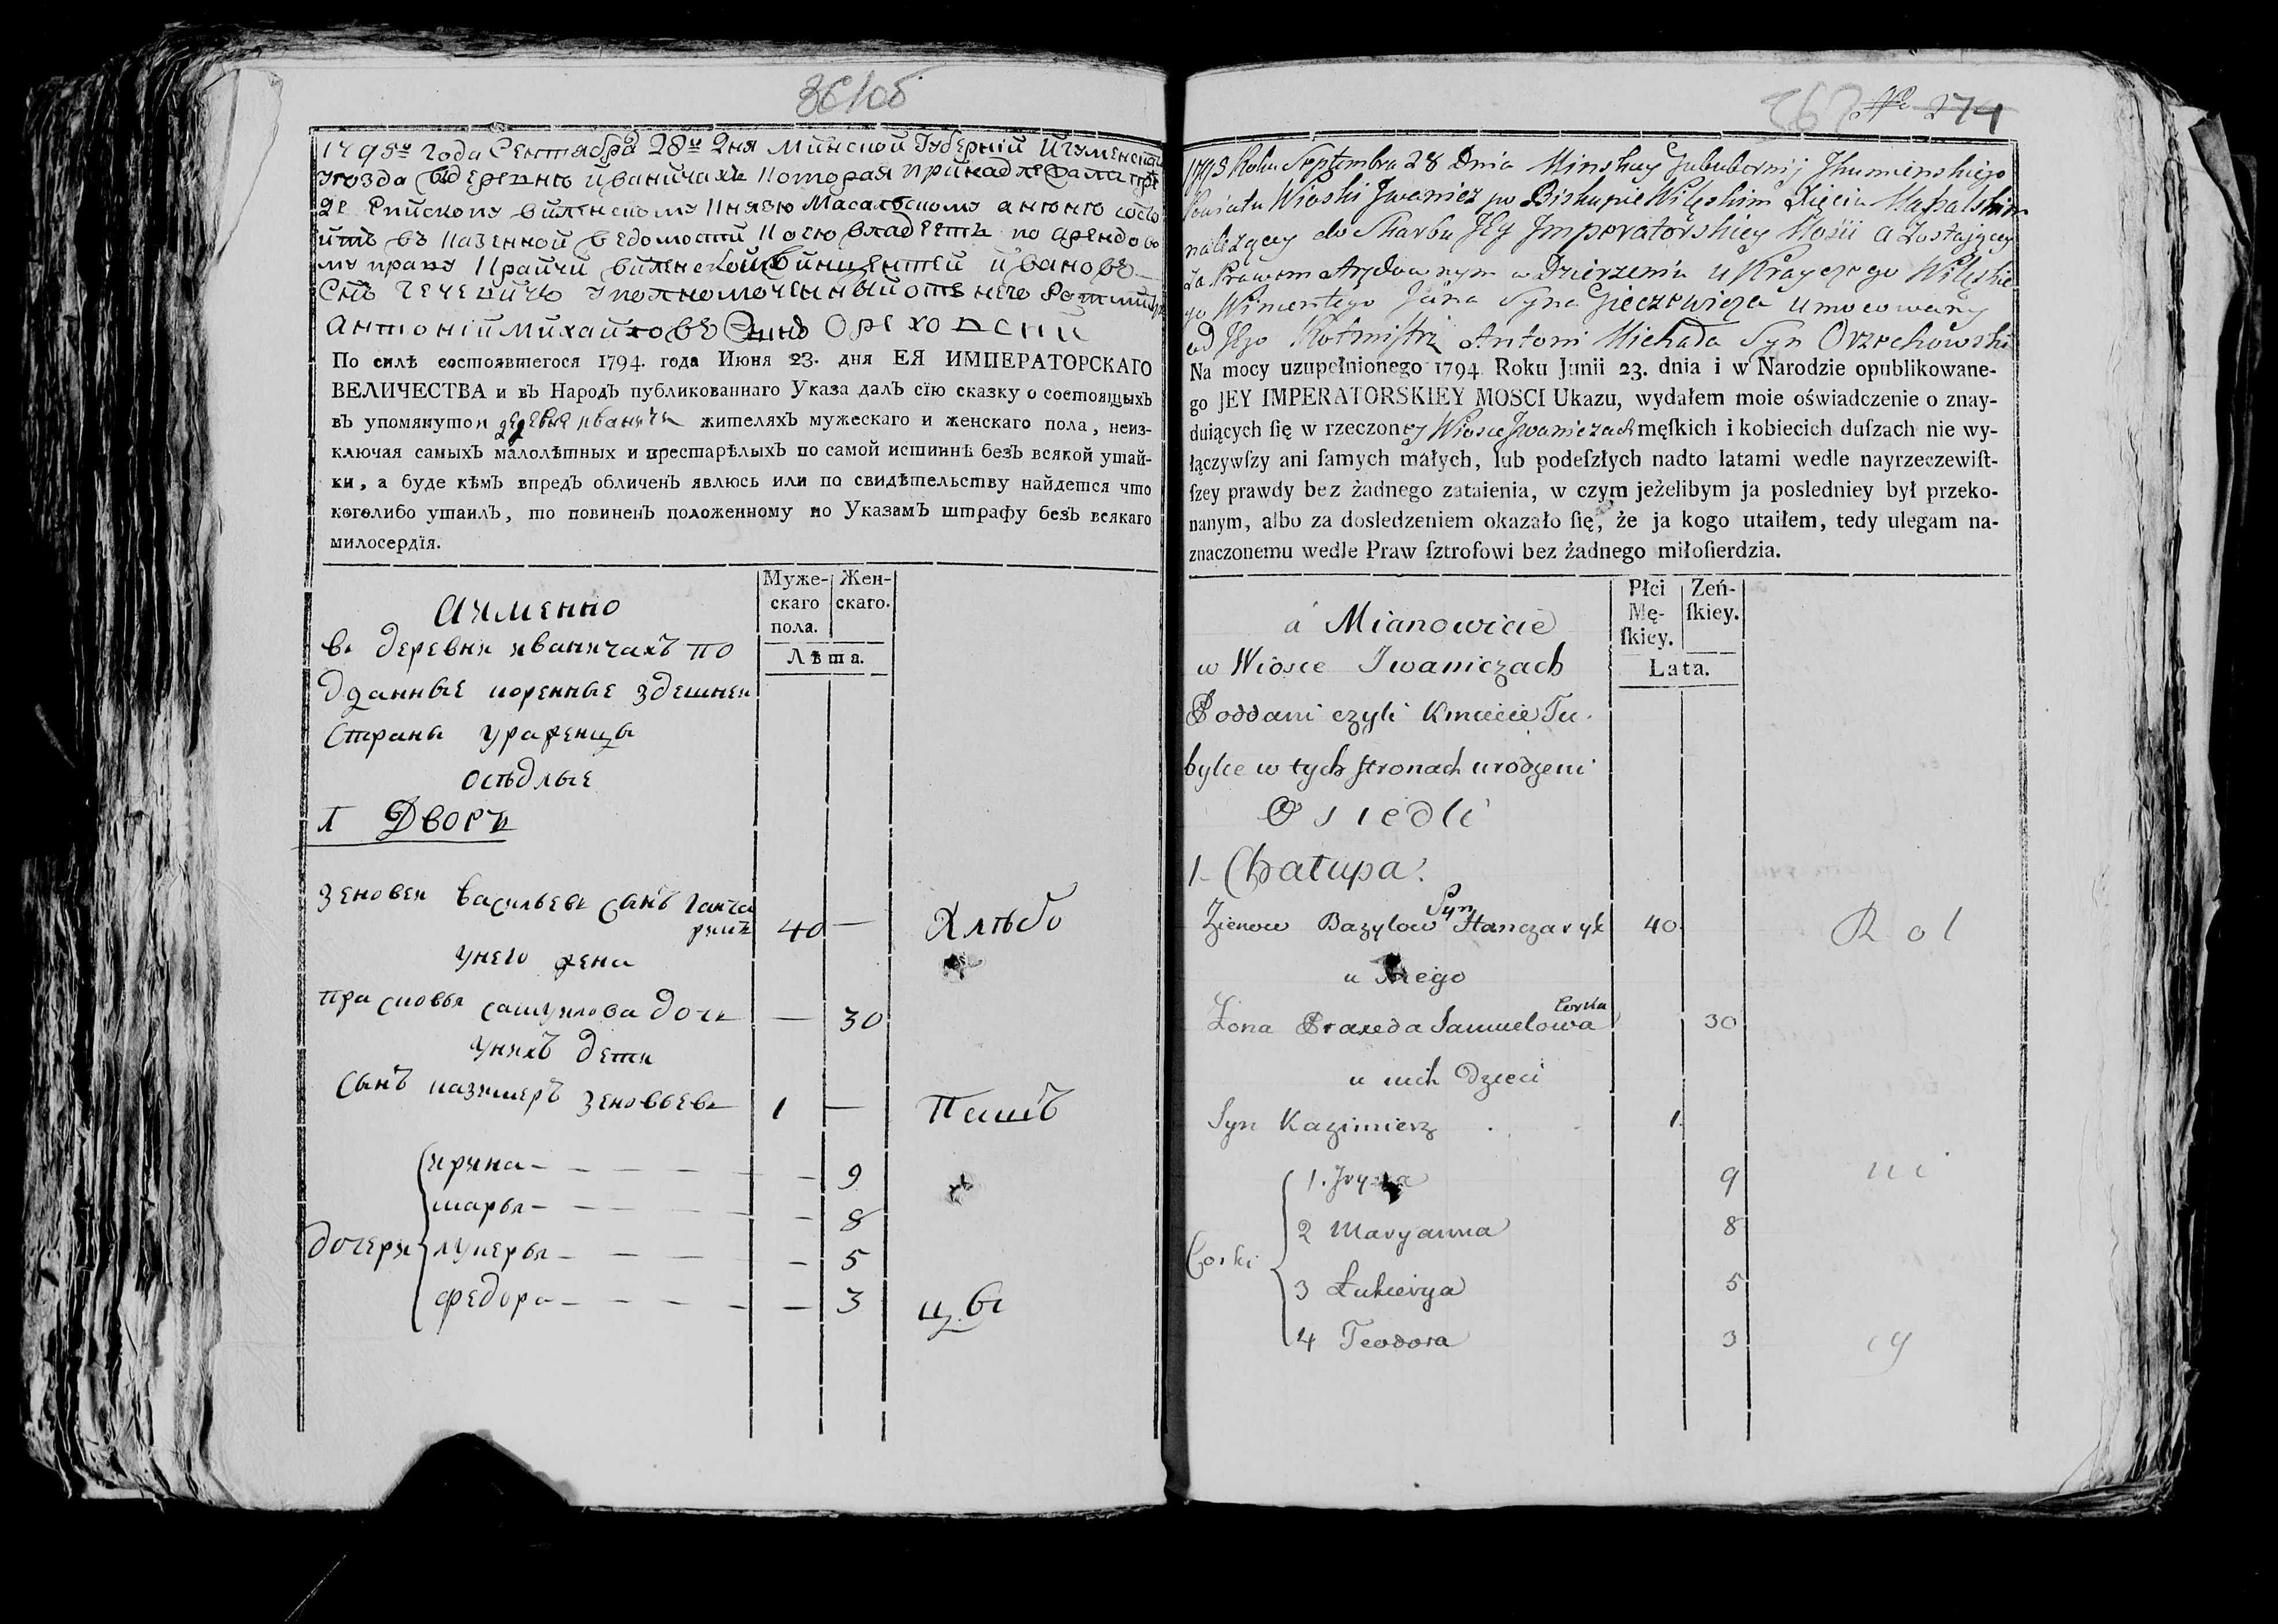 361об
1795го года Сентября 28го дня Минской Губернїй Игуменскаго
уезда въ деревню иваничахъ которая принадлежала пре
Масалскому
въ казенной ведомости коею владеетъ по арендово
му праву Крайчй виленской Винцентей ивановъ
Сынъ Гечевичь уполномоченный отъ него Ротмистръ
Антонїй Михайловъ Сынъ Ореховски
По силѣ состоявшегося 1794. года Июня 23. дня ЕЯ ИМПЕРАТОРСКАГО
ВЕЛИЧЕСТВА и въ Народъ публикованнаго Указа далъ сїю сказку о состоящыхъ
въ упомянутои деревне иваниче жителяхъ мужескаго и женскаго пола, неиз-
ключая самыхъ малолѣтныхъ и престарѣлыхъ по самой истиннѣ безъ всякой утай-
ки, а буде кѣмъ впредъ обличенъ явлюсь или по свидѣтельству найдется что
коголибо утаилъ, то повиненъ положенному по Указамъ штрафу безъ всякаго
милосердїя.
Муже-
скаго
пола.
Жен-
скаго.
Лѣта.
Аименно
въ деревни иваничахъ по
дданные коренные здешнеи
Страны уроженцы
осѣдлые
1 Дворъ
Зеновеи васильевъ сынъ ганча
рикъ 40 — Хлѣбо
унего жена
прасковья самуилова дочь — 30
унихъ дети
Сынъ казимеръ зеновьевъ 1 — Пашъ
ирина — 9
марья — 8
дочери лукерья — 5
федора — 3 цы
362 No 274
1795 Roku Septembra 28 Dnia Minskiey Gububernij Jhumienskiego
Powiatu Wioski Jwanicz po Biskupie Wileńskim Xięciu Massalskim
należący do Skarbu Jey Jmperatorskiey Mości a Zostający
Za Prawem Arędownym w Dzierżeniu u Krayczego Wileńskie
go Wincentego Jana Syna Gieczewicza umocowany
od Jego Rotmistrz Antoni Michała Syn Orzechowski
Na mocy uzupełnionego 1794 Roku Junii 23. dnia i w Narodzie opublikowane-
go JEY IMPERATORSKIEY MOSCI Ukazu, wydałem moie oświadczenie o znay-
duiących ſię w rzeczoney Wiosce Jwaniczach męſkich i kobiecich duſzach nie wy-
łączywſzy ani ſamych małych, lub podeſzłych nadto latami wedle nayrzeczewiſt-
ſzey prawdy bez żadnego zataienia, w czym jeżelibym ja posledniey był przeko-
nanym, albo za dosledzeniem okazało ſię, że ja kogo utaiłem, tedy ulegam na-
znaczonemu wedle Praw ſztrofowi bez żadnego miłoſierdzia.
Płci
Mę-
ſkiey.
Zeń-
ſkiey.
Lata.
a Mianowicie
w Wiosce Jwaniczach
Poddani czyli Kmiecie Tu
bylce w tych stronach urodzeni
Osiedli
1 Chałupa.
Zienow Bazylow Syn Hanczaryk 40 Rol
u Niego
Żona Praxeda Samuelowa Corka 30
u nich Dzieci
Syn Kazimierz 1
1. Jryna 9 ni
2 Maryanna 8
Corki
3 Łukierya 5
4 Teodora 3 cy